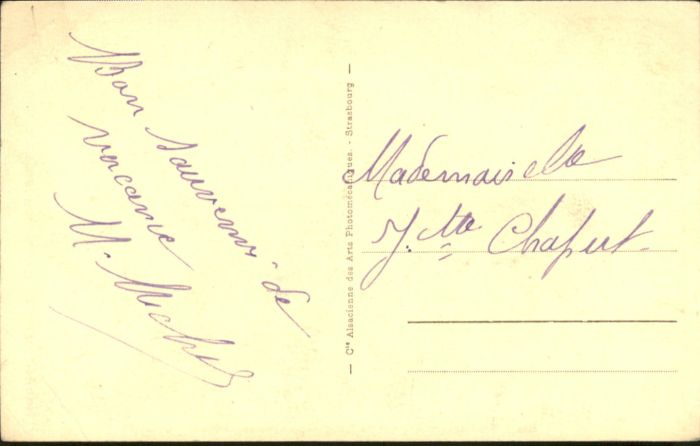 Bon Souvenir de
vacance
M. Michel
— Cie Alsacienne des Arts Photomécaniques. - Strasbourg —
Mademoiselle
J. tte Chaput